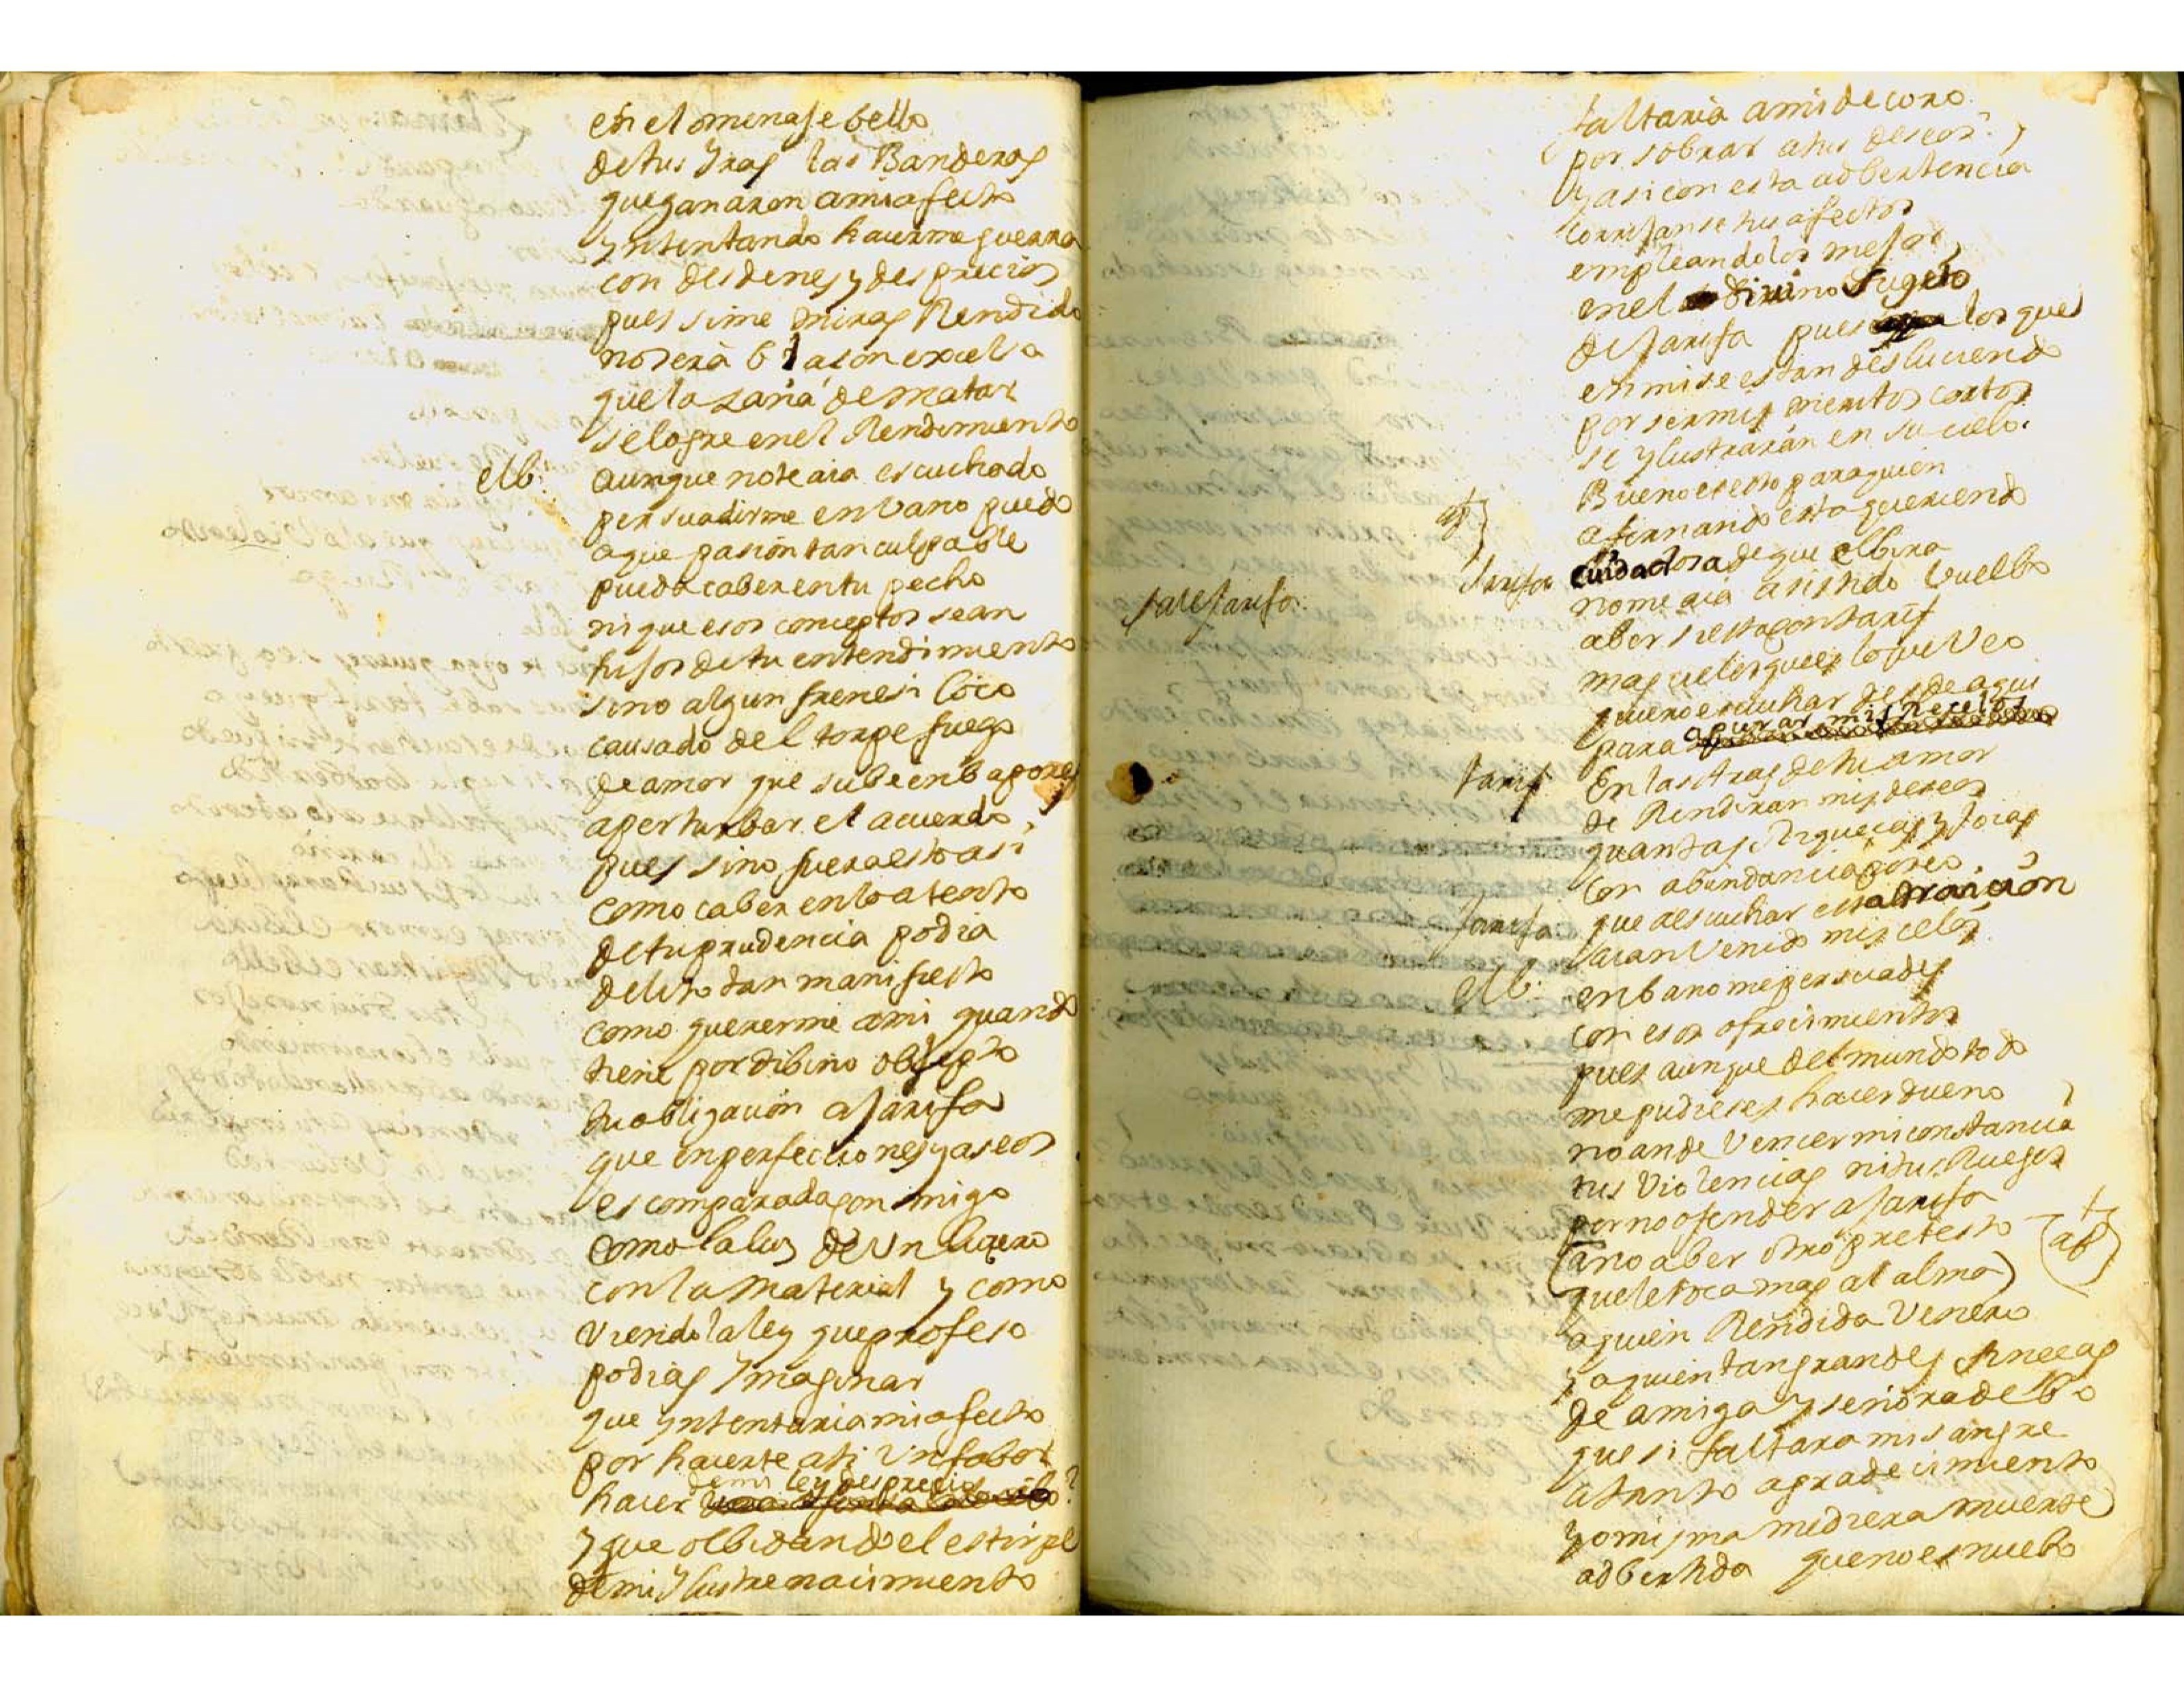 en el omenaje bello
de tus Yras las Banderas
que ganaron a mi afecto
yntentando hacerme guerra
con desdenes y desprecios
pues si me miras Rendido
no sera blason excelso
que la saña de matar
se logre en el Rendimiento
elb. aunque note aia escuchado
persuadirme en vano puedo
a que pasion tan culpable
pueda caber en tu pecho
ni que esos conceptos sean
hijos de tu entendimiento
sino algun frenesi loco
causado del torpe fuego
de amor que sube en bapores
a perturbar el acuerdo,
pues sino fuera esto asi
como caber en lo atento
de tu prudencia podia
delito tan manifiesto
como quererme ami quando
tiene por dibino objepto
tu obligacion a Jarifa
que en perfecciones y aseos
es comparada con migo
como la luz de Un lucero
con la material y como
viendo la ley que profeso
podias Ymaginar
que yntentaria mi afecto
por hacerte a ti Un fabor
hacer de mi ley desprecio?
y que olbidando el estirpe
de mi Ylustre nacimiento
faltaria a mi decoro
por sobrar a tus deseos?
y asi con esta adbertencia
corrijanse tus afectos
empleandolos mejor
en el divino sugeto
de Jarifa pues los que
en mi se estan desluciendo
por ser mis meritos cortos
se ylustraran en su cielo.
ap} Bueno es esto para quien
a fernando esta queriendo
sale Jarifa. Jarifa cuidadosa de que elbira
no me aia asistido buelbo
a ber si esta con tarif
mas cielos que es lo que Veo
quiero escuchar desde aqui
para apurar mis Recelos
tarif En las Aras de tu amor
te Rendiran mis deseos
quantas Riquecas y Joias
con abundancia poseo
Jarifa que a escuchar esta traicion
aian Venido mis celos
elb. en bano me persuades
con esos ofrecimientos
pues aunque del mundo todo
me pudieses hacer dueño
no an de Vencer mi constancia
tus Violencias ni tus Ruegos
por no ofender a Jarifa
(a no aber otro pretesto + (ap)
que le toca mas al alma)
a quien Rendida Venero
y a quien tan grandes finecas
de amiga y señora debo
que si faltara mi sangre
a tanto agradecimiento
yo misma me diera muerte
adbertida que no es nuebo